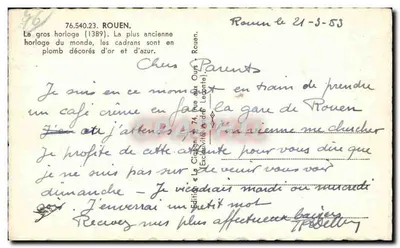 76.540.23. ROUEN.
Le gros horloge (1389). La plus ancienne
horloge du monde, les cadrans sont en
plomb décorés d'or et d'azur.
Rouen le 21-3-53
Chers Parents
Je suis en ce moment en train de prendre
un café crème en face la gare de Rouen
j'attends vienne me chercher
Je profite de cette attente pour vous dire que
je ne suis pas sur de venir vous voir
dimanche - Je viendrais mardi ou mercredi
J'enverrai un petit mot
Recevez mes plus affectueux baisers